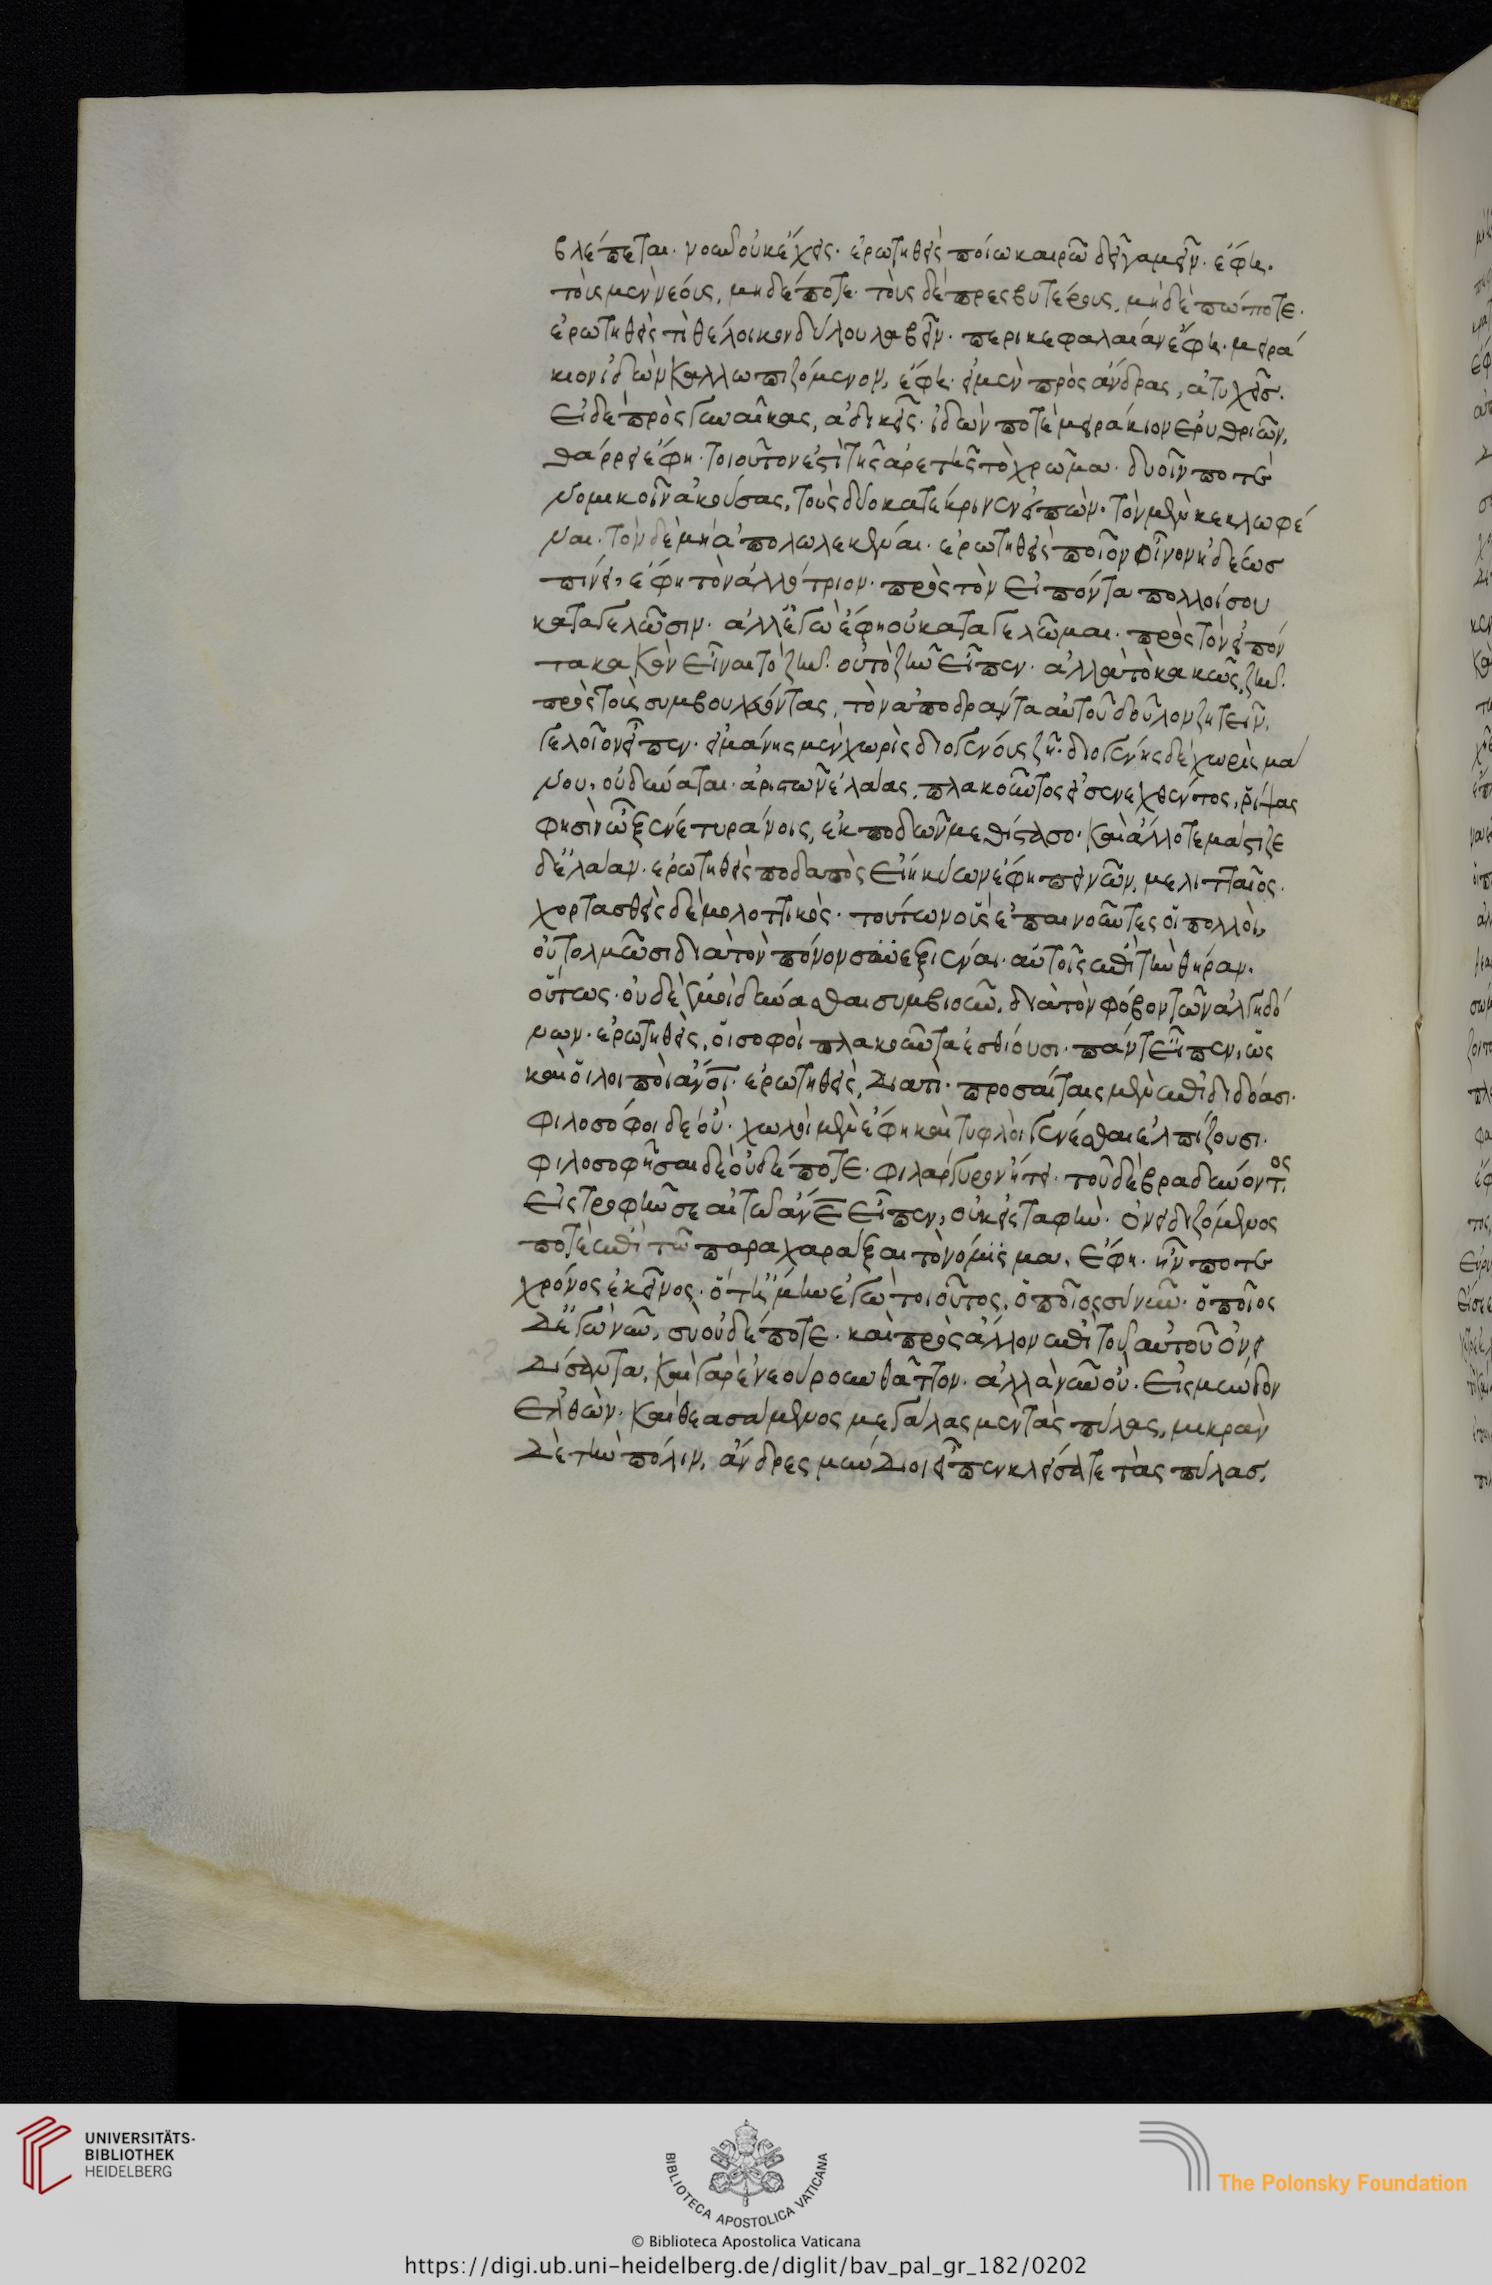 βλέπεται. νοῦν δ' οὐκ ἔχεις. ἐρωτηθεὶς ποίω καιρῶ δεῖ γαμεῖν. ἔφη.
τοῖς μὲν νέοις, μηδέποτε. τοὺς δὲ πρεσβυτέροις, μηδὲ πώποτε.
ἐρωτηθεὶς τί θέλοι κονδύλου λαβεῖν. περικεφαλαίαν ἔφη. μειρά
κιον ἰδὼν καλλωπιζόμενον, ἔφη. εἰ μὲν πρὸς ἄνδρας, ἀτυχεῖσ.
εἰ δὲ πρὸς γυναῖκας, ἀδικεῖς. ἰδών ποτὲ μειράκιον ἐρυθριῶν,
θάρρει ἔφη. τοιοῦτον ἐστὶ τῆς ἀρετῆς τὸ χρῶμα. δυοῖν ποτὲ
νομικοῖν ἀκούσας, τοὺς δύο κατέκρινεν εἰπών. τὸν μὲν κεκλωφέ
ναι. τὸν δὲ μὴ ἀπολωλεκέναι. ἐρωτηθεὶς ποῖον οἶνον ἡδέωσ
πίνει, ἔφη τὸν ἀλλότριον. πρὸς τὸν εἰπόντα πολλοί σου
καταγελῶσιν. ἀλλ' ἐγὼ ἔφη οὐ καταγελῶμαι. πρὸς τὸν εἰπόν
τα κακὸν εἶναι τὸ ζῆν. οὐ τὸ ζῆν εἶπεν. ἀλλὰ τὸ κακῶς ζῆν.
πρὸς τοὺς συμβουλεύοντας, τὸν ἀποδράντα αὐτοῦ δοῦλον ζητεῖν,
γελοῖον εἶπεν. εἰ μάνης μὲν χωρὶς διογένους ζῆ. διογένης δὲ χωρὶς μά
νου, οὐ δύναται. ἀριστῶν ἐλαίας, πλακοῦντος εἰσενεχθέντος, ῥίψας
φησὶν ὦ ξένε τυράνοις, ἐκποδὼν μεθίστασο. καὶ ἄλλοτε μάστιζε
δ' ἐλάαν. ἐρωτηθεὶς ποδαπὸς εἴη κύων ἔφη πεινῶν, μελιτταῖος.
χορτασθεὶς δὲ μολοττικός. τούτων οὓς ἐπαινοῦντες οἱ πολλοὶ,
οὐ τολμῶσι διὰ τὸν πόνον συνεξιέναι. αὐτοῖς ἐπὶ τὴν θήραν.
οὕτως. οὐδὲ ἐμοὶ δύνασθαι συμβιοῦν, διὰ τὸν φόβον τῶν ἀλγηδό
νων. ἐρωτηθεὶς, οἱ σοφοὶ πλακοῦντα ἐσθίουσι. πάντ' εἶπεν, ὡς
καὶ οἱ λοιποὶ ἄνοι. ἐρωτηθεὶς, διατὶ. προσαίταις μὲν ἐπιδιδόασι.
φιλοσόφοι δὲ οὔ. χωλοὶ μὲν ἔφη καὶ τυφλοὶ γενέσθαι ἐλπίζουσι.
φιλοσοφῆσαι δὲ οὐδέποτε. φιλάργυρον ἤτει. τοῦ δὲ βραδύνοντος,
εἰς τροφήν σε αἰτῶ ἄνε εἶπεν, οὐκ εἰς ταφήν. ὀνειδιζόμενος
ποτὲ ἐπὶ τῶ παραχαράξαι τὸ νόμισμα, ἔφη. ἦν ποτὲ
χρόνος ἐκεῖνος. ὅτ' ἤμην ἐγὼ τοιοῦτος, ὁποῖος σὺ νῦν. ὁποῖος
δ' ἐγὼ νῦν, σὺ οὐδέποτε. καὶ πρὸς ἄλλον ἐπὶ τοῦ αὐτοῦ ὀνει
δίσαντα, καὶ γὰρ ἐνεούρουν θᾶττον. ἀλλὰ νῦν οὔ. εἰς μύνδον
ἐλθών. καὶ θεασάμενος μεγάλας μὲν τὰς πύλας, μικρὰν
δὲ τὴν πόλιν, ἄνδρες μύνδιοι εἶπεν κλείσατε τὰς πύλασ,
UNIVERSITÄTS-
BIBLIOTHEK
HEIDELBERG
BIBLIOTECA APOSTOLICA VATICANA
The Polonsky Foundation
© Biblioteca Apostolica Vaticana
https://digi.ub.uni-heidelberg.de/diglit/bav_pal_gr_182/0202